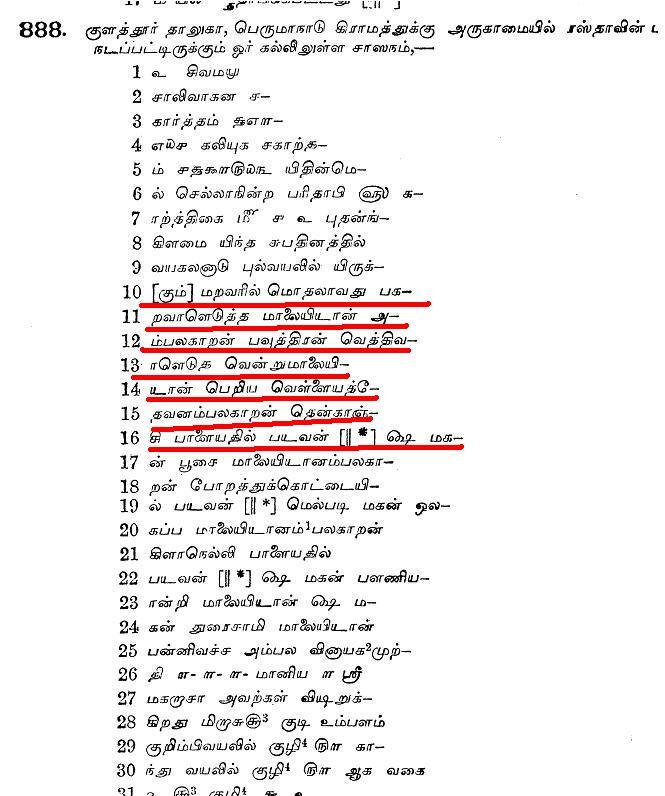 888. குளத்தூர் தாலுகா, பெருமாநாடு கிராமத்துக்கு அருகாமையில் ரஸ்தாவின்
நடப்பட்டிருக்கும் ஓர் கல்லிலுள்ள சாஸநம்,—
1 உ சிவமயு
2 சாலிவாகன ச—
3 கார்த்தம்
4 கலியுக சகாற்த—
5 ம் யிதின்மெ—
6 ல் செல்லாநின்ற பரிதாபி க—
7 ார்த்திகை புதன்ங்—
8 கிளமை யிந்த சுபதினத்தில்
9 வயகலனாடு புல்வயலில் யிருக்—
10 [கும்] மறவரில் மொதலாவது பக—
11 றவாளெடுத்த மாலையிடான் அ—
12 ம்பலகாறன் பவுத்திரன் வெத்திவ—
13 ாளெடுத வென்றுமாலையி—
14 யான் பெறிய வெள்ளையத்தே—
15 தவனம்பலகாறன் தென்காஞ்—
16 சி பாளையதில் படவன் [|| *] ௸ மக—
17 ன் பூசை மாலையிடானம்பலகா—
18 றன் போறத்துக்கொட்டையி—
19 ல் படவன் [|| *] மெல்படி மகன் ஒல—
20 கப்ப மாலையிடானம்¹பலகாறன்
21 கிளாநெல்லி பாளையதில்
22 படவன் [|| *] ௸ மகன் பளணிய—
23 ான்றி மாலையிடான் ௸ ம—
24 கன் துரைசாமி மாலையிடான்
25 பண்ணிவச்ச அம்பல வினாயக²முற்—
26 தி ௱- ௱- ௱- மானிய ௱ ஸ்ரீ
27 மகாறாசா அவற்கள் விடிறுக்—
28 கிறது மிறுசு ³ குடி உம்பளம்
29 குறிம்பிவயலில் குழி⁴ ௫௱ கா—
30 ந்து வயலில் குழி⁴ ௫௱ ஆக வகை
31 ³ குழி⁴